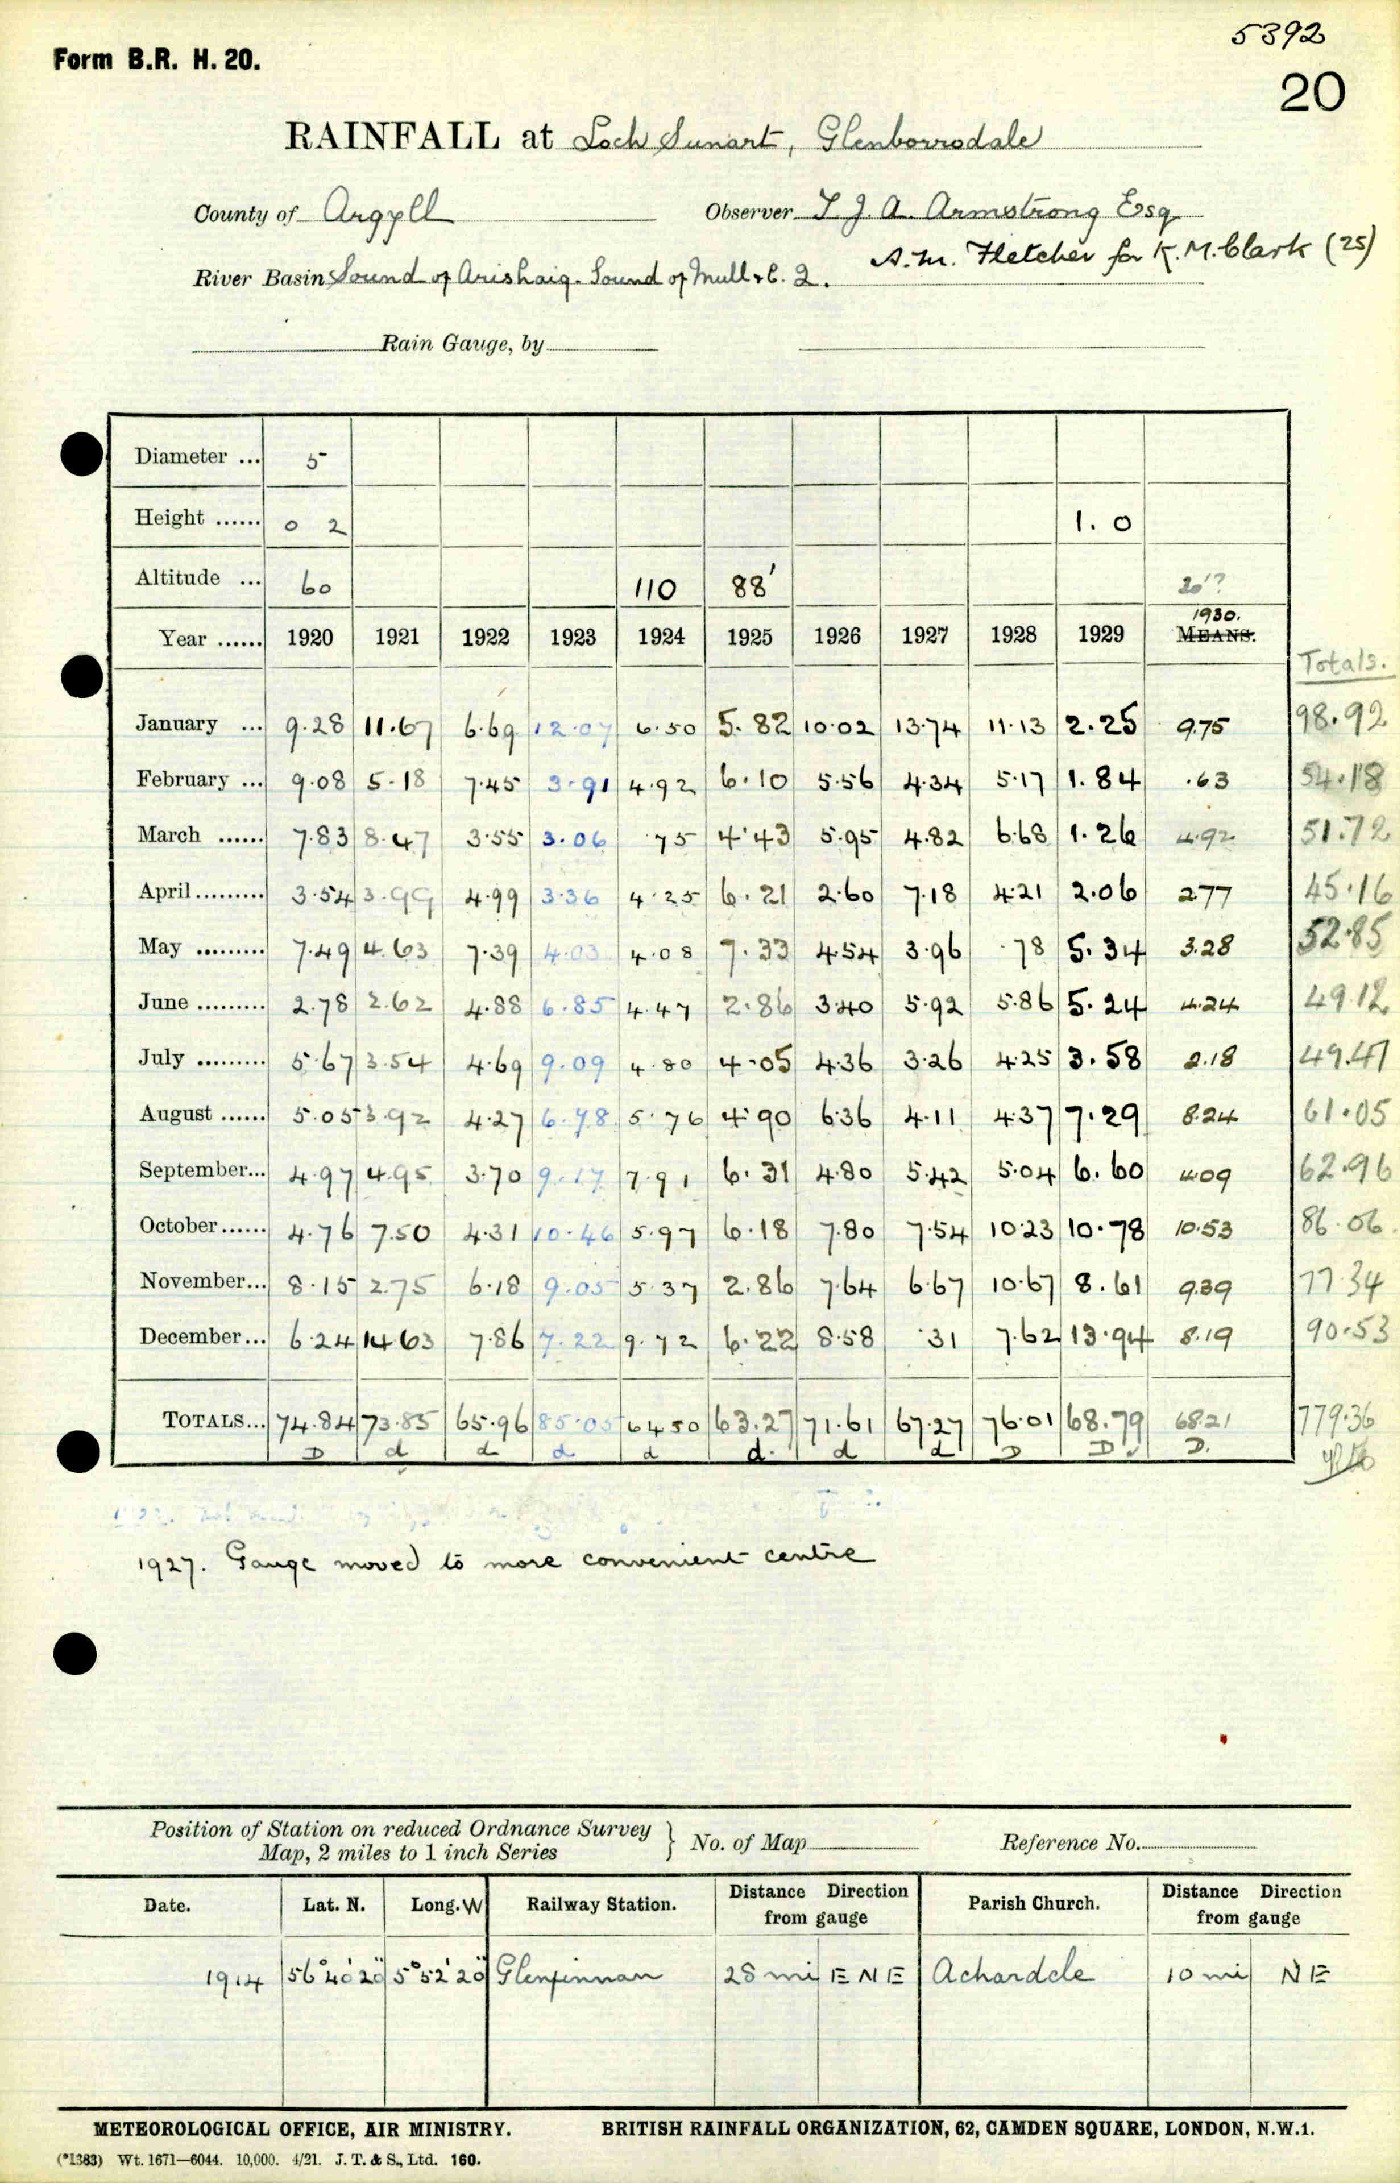 5392
Form B.R. H. 20.
20
RAINFALL at Loch Sunart, Glenborrodale
County of Argyll Observer T. J. A. Armstrong Esq
A. M. Fletcher for K. M. Clark (25)
River Basin Sound of Arishaig - Sound of Mull & C. 2.
Rain Gauge, by
Diameter ... 5
Height ...... 0 2 1. 0
Altitude ... 60 110 88' 20'?
1930.
Year ...... 1920 1921 1922 1923 1924 1925 1926 1927 1928 1929 MEANS.
Totals.
January ... 9.28 11.67 6.69 12.07 6.50 5.82 10.02 13.74 11.13 2.25 9.75 98.92
February ... 9.08 5.18 7.45 3.91 4.92 6.10 5.56 4.34 5.17 1.84 .63 54.18
March ...... 7.83 8.47 3.55 3.06 .75 4.43 5.95 4.82 6.68 1.26 4.92 51.72
April ......... 3.54 3.99 4.99 3.36 4.25 6.21 2.60 7.18 4.21 2.06 2.77 45.16
May ......... 7.49 4.63 7.39 4.03 4.08 7.33 4.54 3.96 .78 5.34 3.28 52.85
June ......... 2.78 2.62 4.88 6.85 4.47 2.86 3.40 5.92 5.86 5.24 4.24 49.12
July ......... 5.67 3.54 4.69 9.09 4.80 4.05 4.36 3.26 4.25 3.58 2.18 49.47
August ...... 5.05 3.92 4.27 6.78 5.76 4.90 6.36 4.11 4.37 7.29 8.24 61.05
September... 4.97 4.95 3.70 9.17 7.91 6.31 4.80 5.42 5.04 6.60 4.09 62.96
October...... 4.76 7.50 4.31 10.46 5.97 6.18 7.80 7.54 10.23 10.78 10.53 86.06
November... 8.15 2.75 6.18 9.05 5.37 2.86 7.64 6.67 10.67 8.61 9.39 77.34
December... 6.24 14.63 7.86 7.22 9.72 6.22 8.58 .31 7.62 13.94 8.19 90.53
TOTALS... 74.84 73.85 65.96 85.05 64.50 63.27 71.61 67.27 76.01 68.79 68.21 779.36
D d d d d d. d d D D D.
1927. Gauge moved to more convenient centre
Position of Station on reduced Ordnance Survey
Map, 2 miles to 1 inch Series } No. of Map Reference No.
Date. Lat. N. Long. W Railway Station. Distance Direction from gauge Parish Church. Distance Direction from gauge
1914 56° 40' 20" 5° 52' 20" Glenfinnan 28 mi ENE Achardcle 10 mi NE
METEOROLOGICAL OFFICE, AIR MINISTRY. BRITISH RAINFALL ORGANIZATION, 62, CAMDEN SQUARE, LONDON, N.W.1.
(*1383) Wt. 1671—6044. 10,000. 4/21. J. T. & S., Ltd. 160.